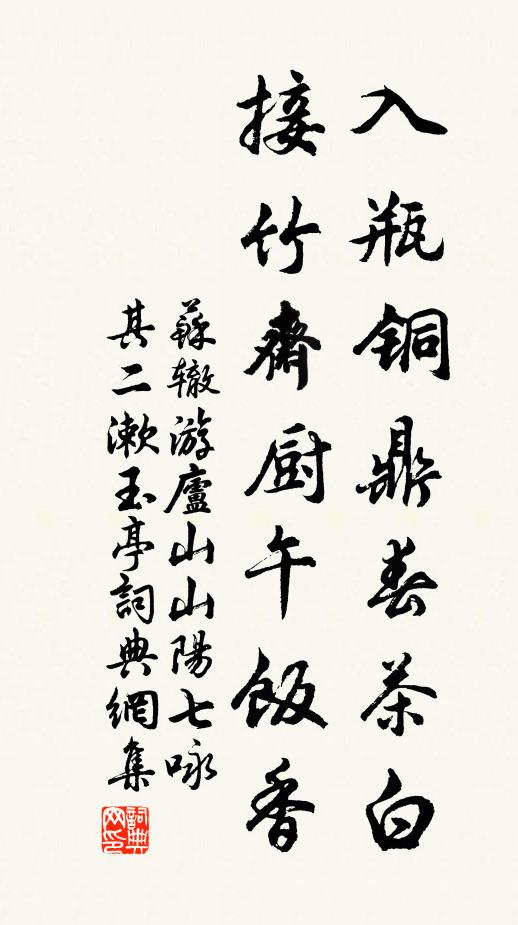 入瓶铜鼎春茶白
接竹齋厨午飯香
蘇辙游廬山山陽七咏
其二漱玉亭詞典網集
詞典网印